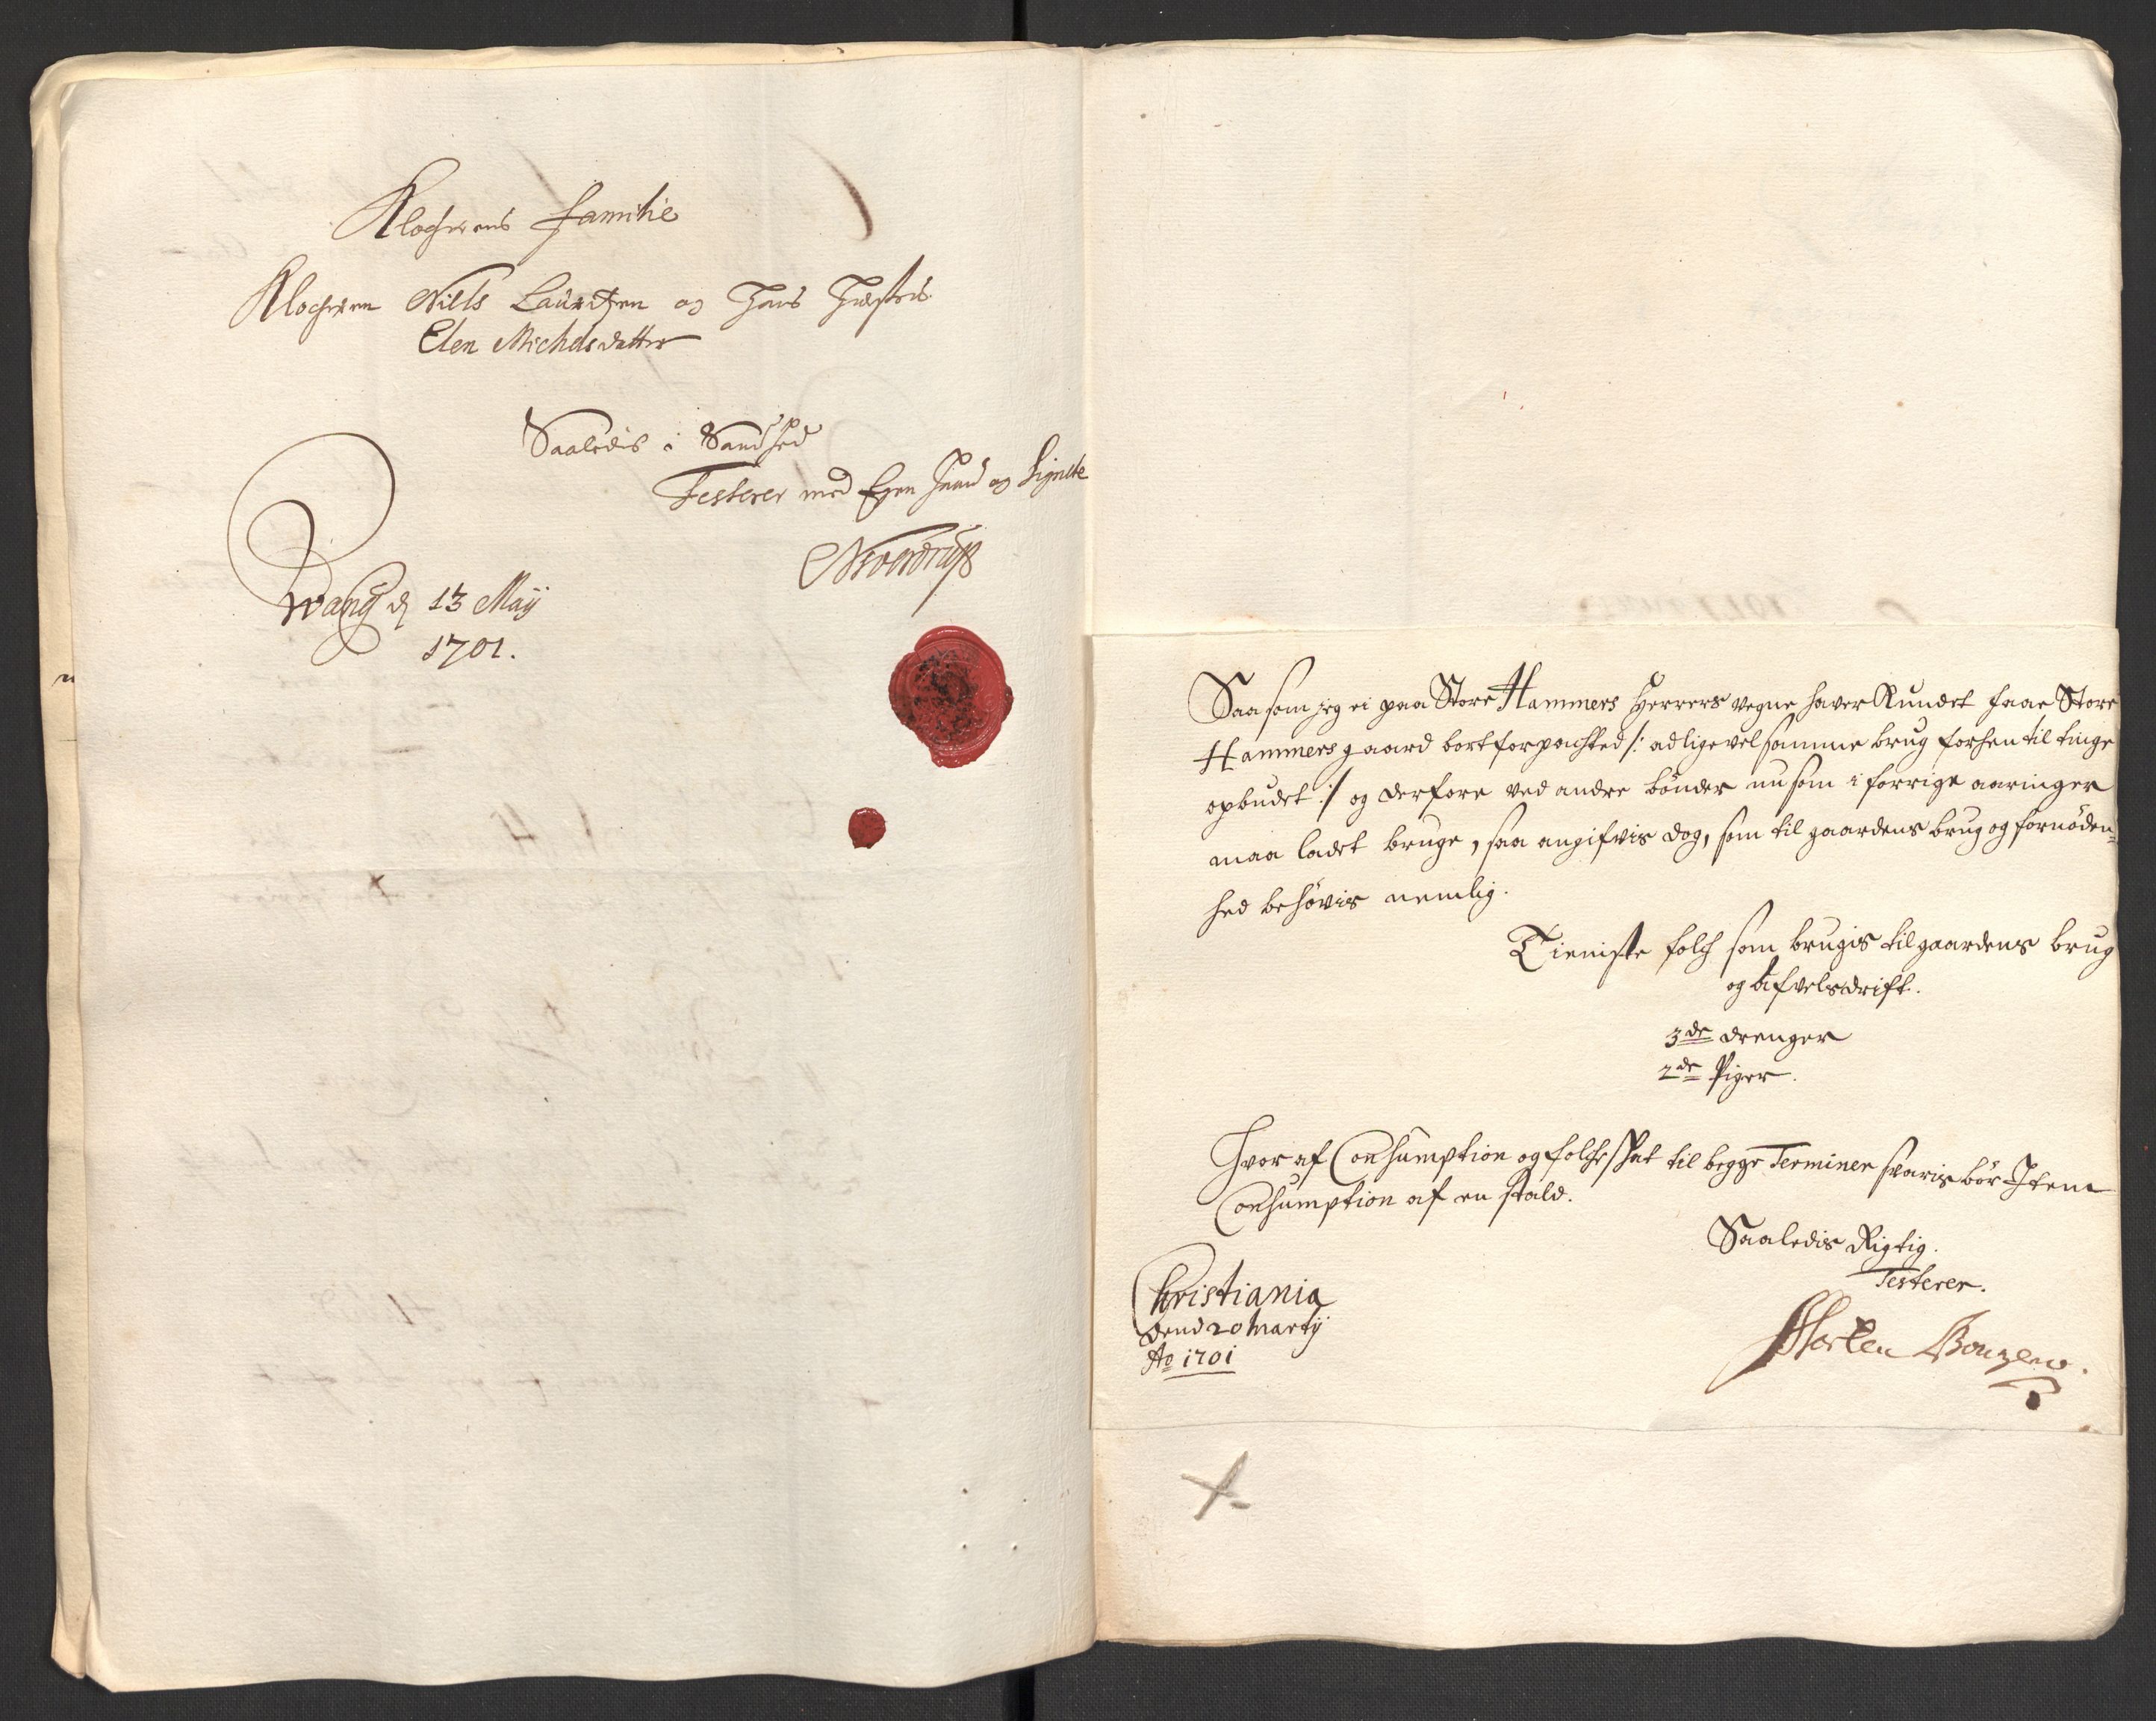 Klocherens familie
Klocheren Nills Lauritzen og Hans Hustrue
Elen Michelsdatter
Saaledis i Sandhed
Testerer med Egen Haand og Signete
Wang d 13 Maij
1701.
Saasom jeg ei paa Store Hammers Herrers vegne haver Kundet faae Store
Hammers gaard bortforpachted /: ad ligevel samme brug forhen til tinge
opbudet :/ og derfore ved andre bönder nu som i forrige aaringer
maa ladet bruge, saa angifvis dog, som til gaardens brug og fornöden=
hed behövis nemlig.
Tieniste folch som brugis til gaardens brug
og Afvelsdrift.
3de drenger
2de Piger.
Hvor af Consumption og folcheskat til begge Terminer svaris bör Item
Consumption af en stald.
Saaledis Rigtig.
Testerer.
Christiania
dend 20 Martij
Ao 1701
Morten